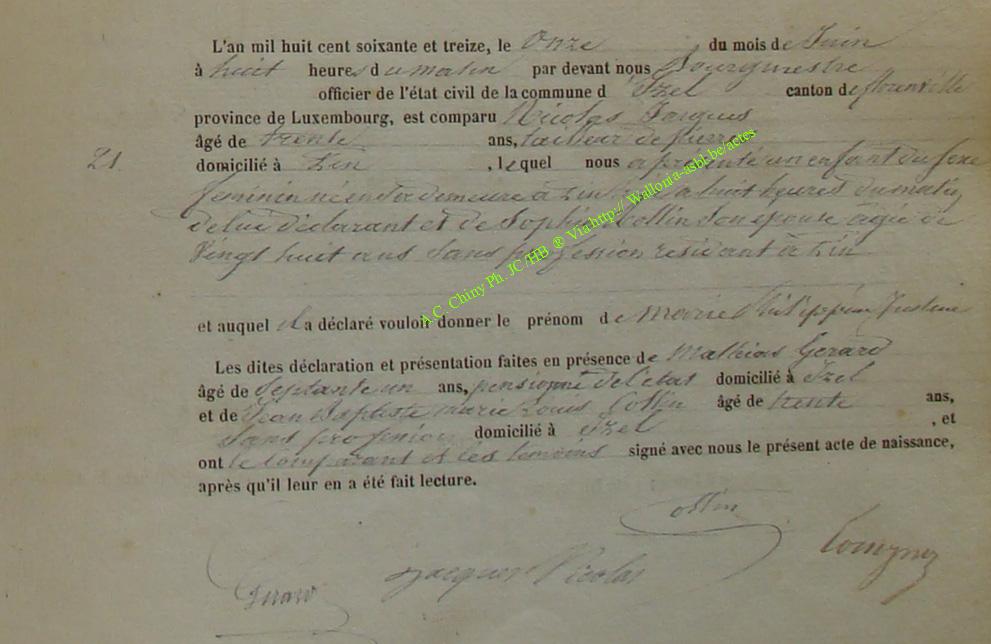 L'an mil huit cent soixante et treize, le Onze du mois de Juin
à huit heures du matin par devant nous Bourgmestre
officier de l'état civil de la commune d'Izel canton de florenville
province de Luxembourg, est comparu Nicolas Jacques
âgé de trente ans, tailleur de pierres
21. domicilié à Pin, lequel nous a présenté un enfant du sexe
feminin né en sa demeure à Pin à huit heures du matin
de lui déclarant et de Sophie Collin Son epouse agée de
Vingt huit ans Sans profession residant à Pin
et auquel il a déclaré vouloir donner le prénom de Marie Philippine Justine
Les dites déclaration et présentation faites en présence de Mathias Gerard
âgé de Septante un ans, pensionné de l'etat domicilié à Izel
et de Jean Baptiste Marie Louis Collin âgé de trente ans,
Sans profession domicilié à Izel, et
ont le comparant et les temoins signé avec nous le présent acte de naissance,
après qu'il leur en a été fait lecture.
Collin
Jacques Nicolas
Gerard
A.C. Chiny Ph. JC /HB ® Via http:// Wallonia-asbl.be/actes